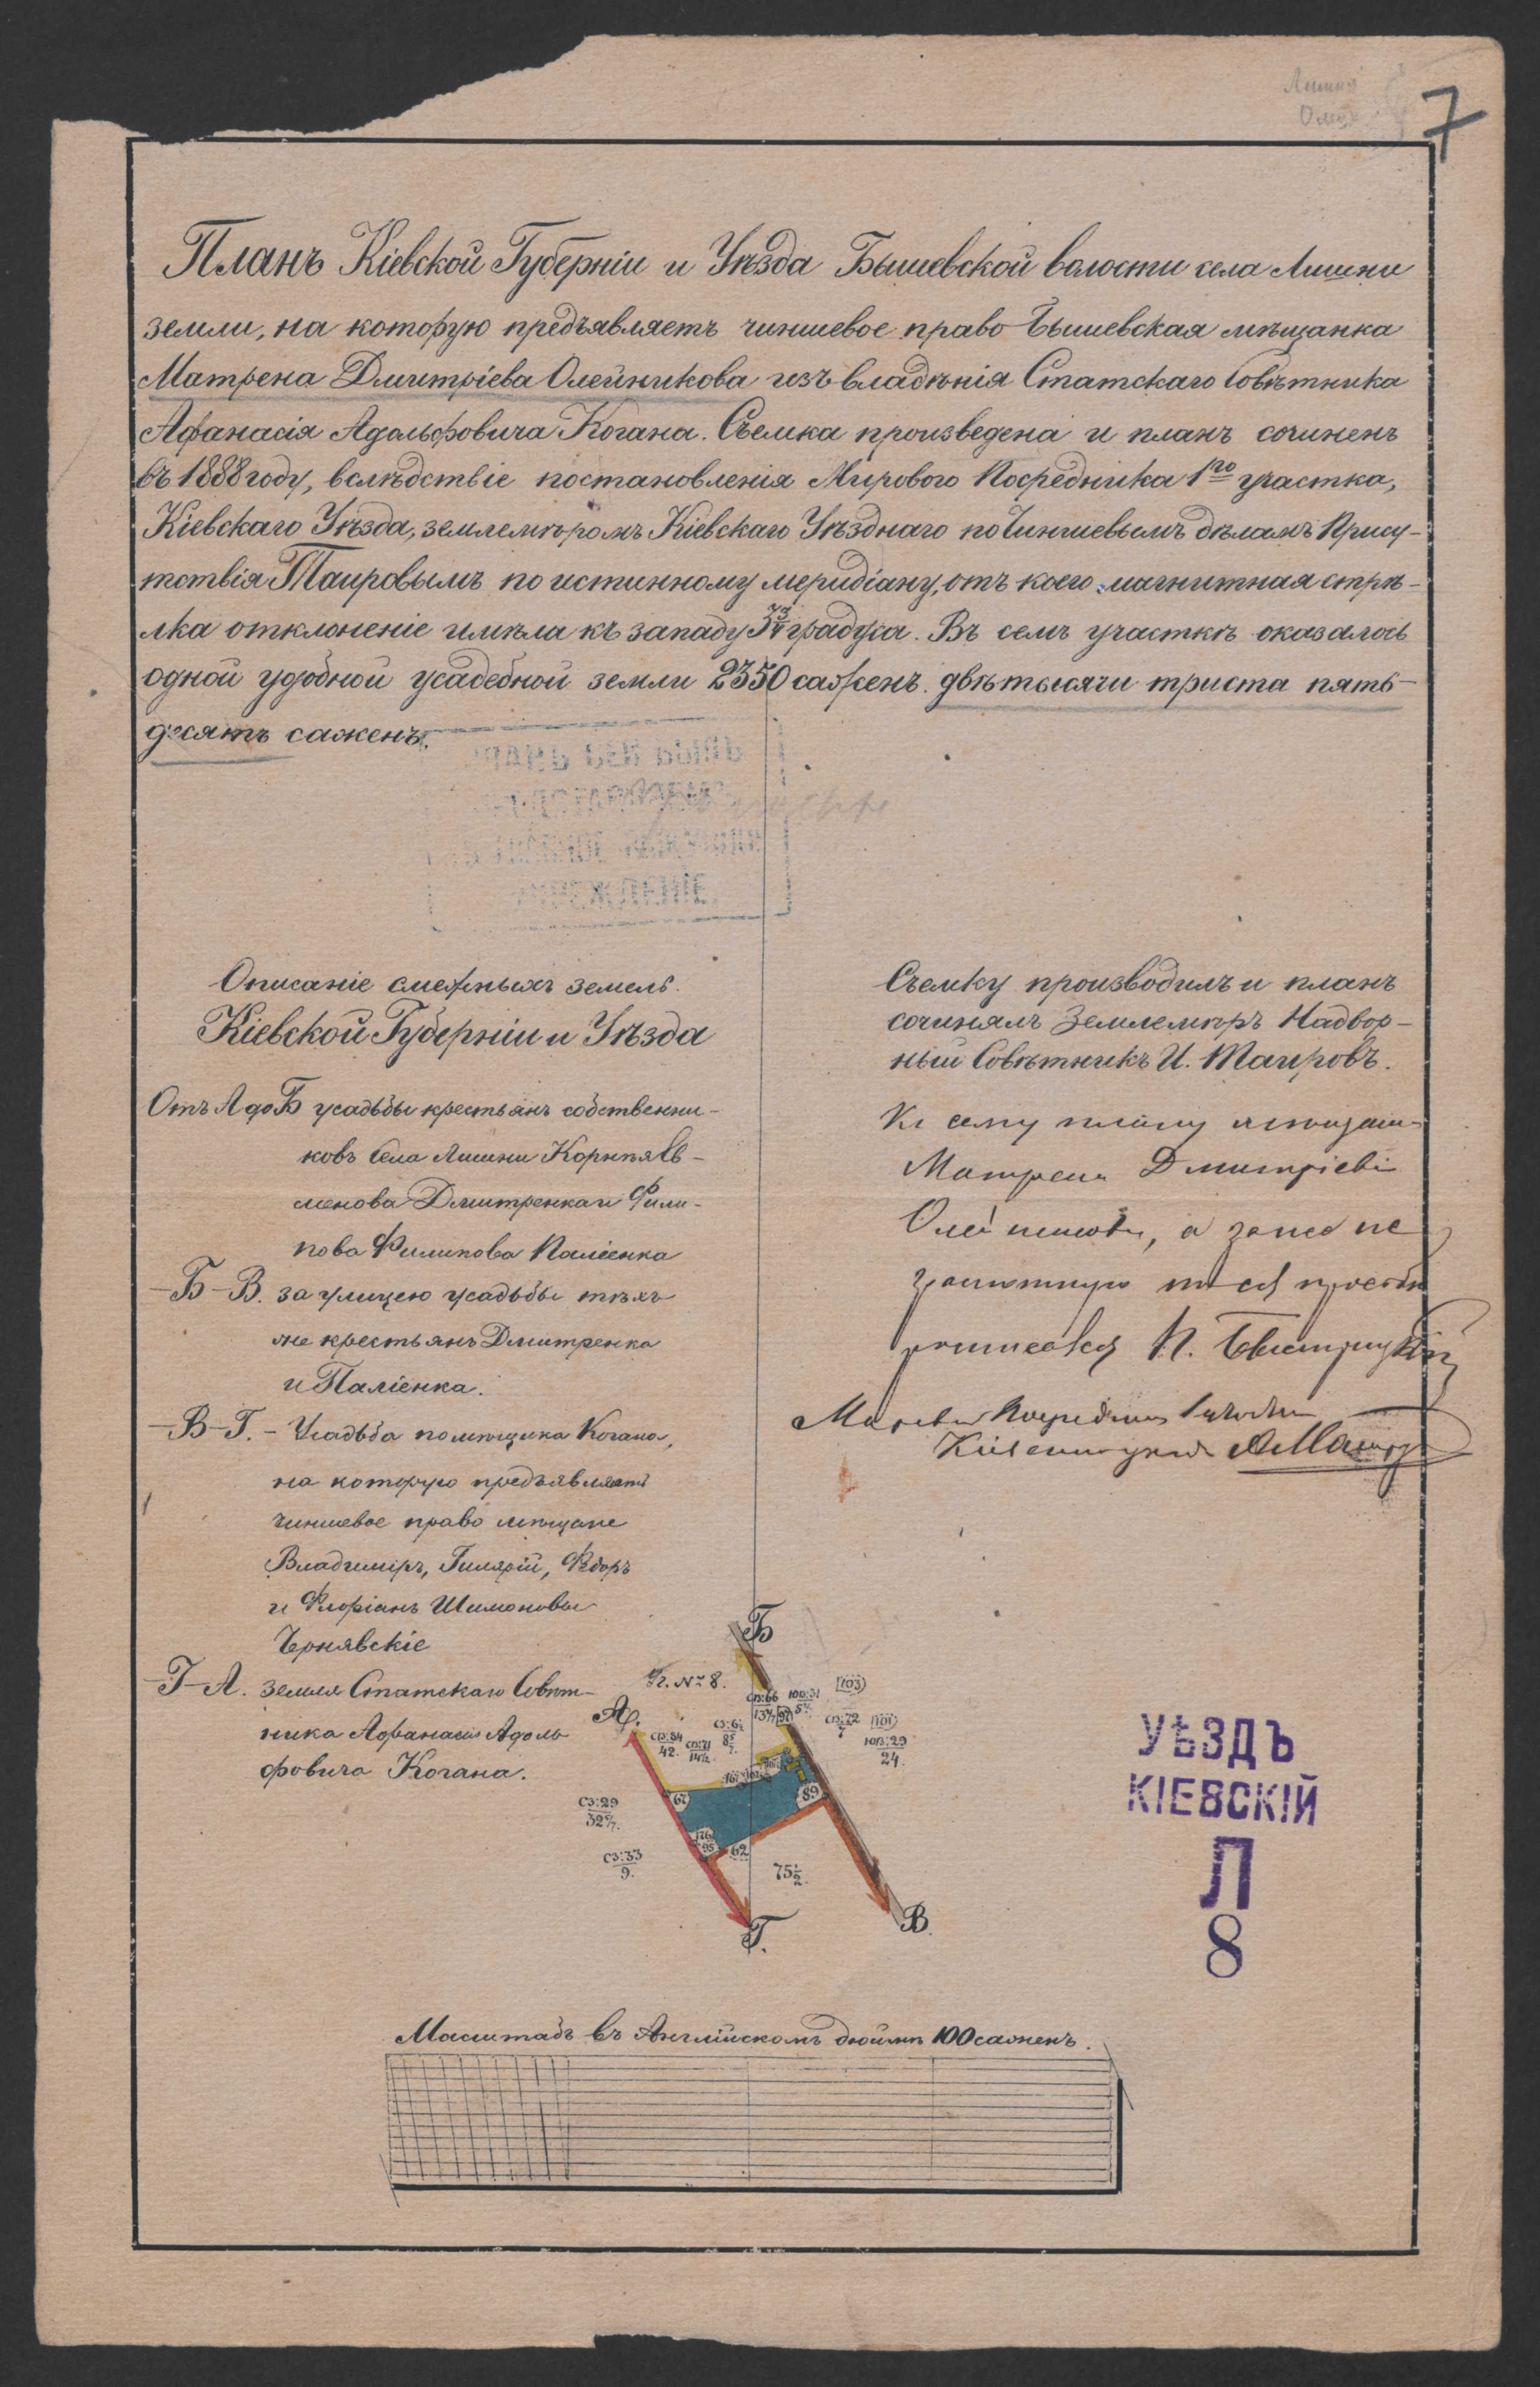 7
Планъ Кіевской Губерніи и Уѣзда Бышевской волости села Лишни
земли, на которую предъявляетъ чиншевое право Бышевская мѣщанка
Матрена Дмитріева Олейникова изъ владѣнія Статскаго Совѣтника
Афанасія Адольфовича Когана. Съемка произведена и планъ сочиненъ
въ 1888 году, вслѣдствіе постановленія Мирового Посредника 1го участка,
Кіевскаго Уѣзда, землемѣромъ Кіевскаго Уѣзднаго по Чиншевымъ дѣламъ Прису-
тствія Таировымъ по истинному меридіану, отъ коего магнитная стрѣ-
лка отклоненіе имѣла къ западу градуса. Въ семъ участкѣ оказалось
одной удобной усадебной земли 2350 саженъ. двѣ тысячи триста пять-
десятъ саженъ.
Описаніе смежныхъ земель.
Кіевской Губерніи и Уѣзда
Отъ А до Б усадьбы крестьянъ собственни-
ковъ села Лишни Корнѣя Ев-
менова Дмитренка и Фили-
пова Филипова Паліенка
Б-В. за улицею усадьбы тѣхъ
же крестьянъ Дмитренка
и Паліенка.
В-Г. - Усадьба помѣщика Когана,
на которую предъявляютъ
чиншевое право мѣщане
Владимиръ, Гилярій, Федоръ
и Флоріанъ Шимоновы
Чернявскіе
Г-А. земля Статскаго Совѣт-
ника Афанасія Адоль
фовича Когана.
Съемку производилъ и планъ
сочинялъ Землемѣръ Надвор-
ный Совѣтникъ И. Таировъ.
Къ сему плану
Матрена Дмитріева
Олейникова, а за нея не
грамотную по ея просьбѣ
росписался П.
Мировой Посредникъ 1 участка
Б
Уч. № 8.
А.
(103)
СЗ:66
13
ЮВ:31
5
СВ:72
7
(101)
ЮВ:29
24.
СЗ:34
42.
СВ:71
14½.
67
89
СЗ:29
32
95
62
СЗ:33
9.
75½.
Г.
В.
УѢЗДЪ
КІЕВСКІЙ
Л
8
Масштабъ въ Англійскомъ дюймѣ 100 саженъ.